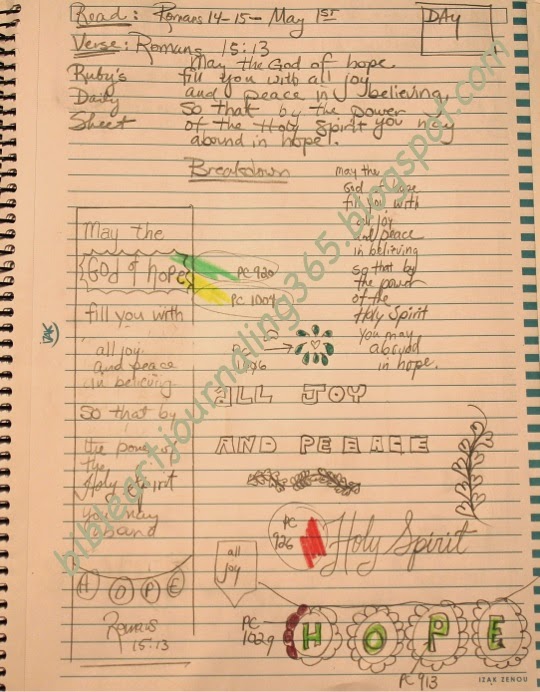 Read: Romans 14-15- May 1ST
DAY
Verse: Romans 15:13
May the God of hope
Ruby's fill you with all joy
Daily and peace in believing,
Sheet so that by the power
of the Holy Spirit you may
abound in hope!
Breakdown
May the
God of hope
fill you with
all joy
and peace
in believing
so that by
the power
of the
Holy Spirit
you may
abound
in hope.
May the
God of hope
fill you with
all joy
and peace
in believing
so that by
the power of
the
Holy Spirit
you may
abound
HOPE
Romans
15:13
PC 920
PC 1004
PC
ALL JOY
AND PEEACE
PC
926
Holy Spirit
all
joy
PC
1029
HOPE
PC 913
IZAK ZENOU
bibleartjournaling365.blogspot.com